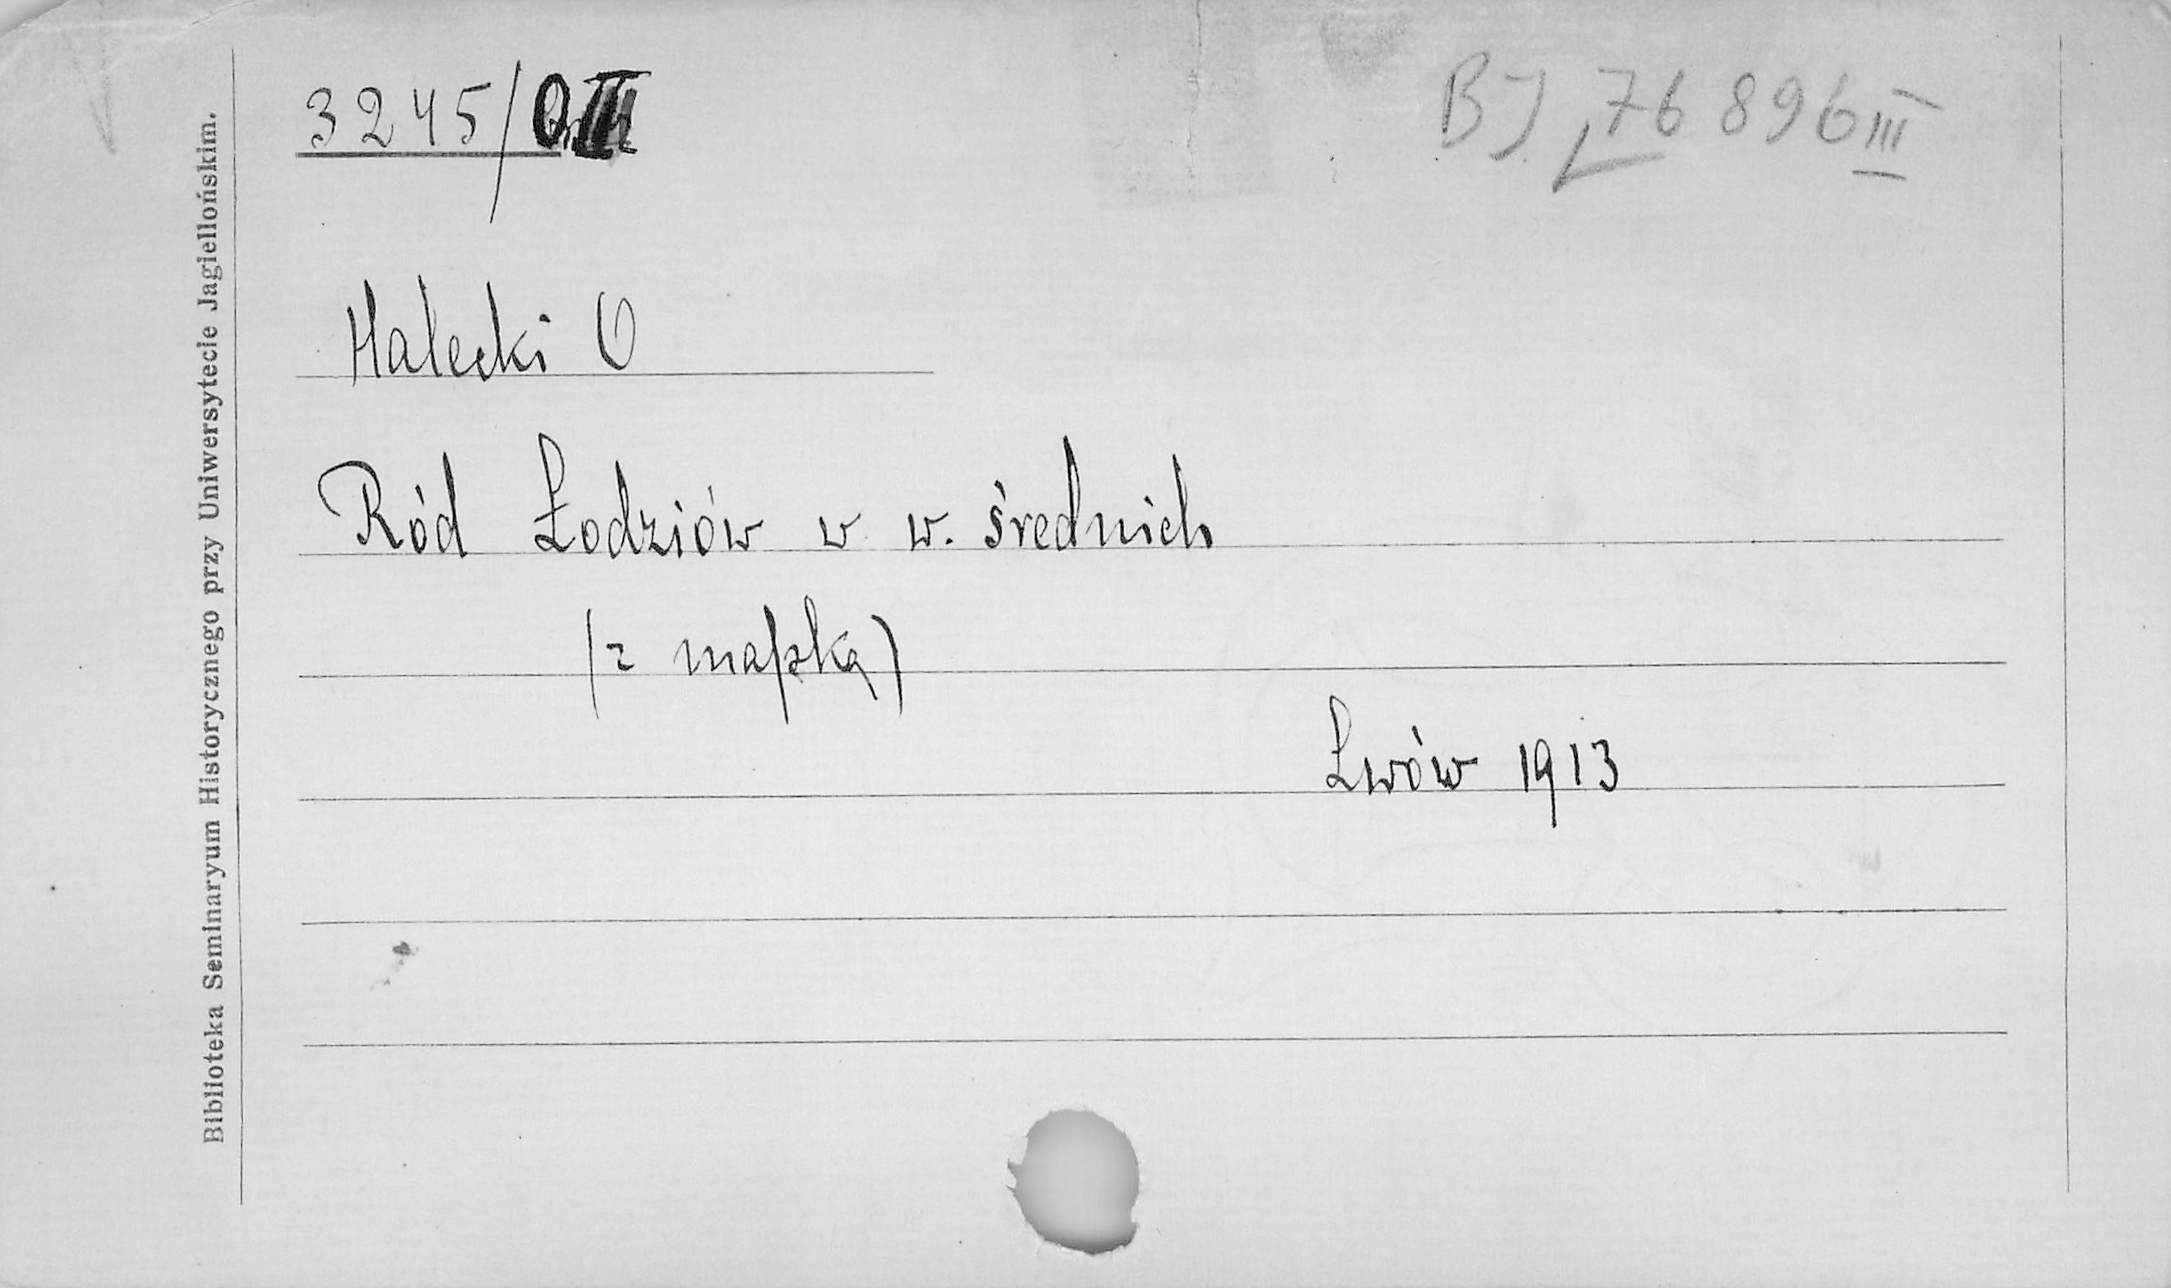 3245/OII
BJ 76 896 III
Halecki O
Ród Łodziów w w. średnich
(z mapką)
Lwów 1913
Biblioteka Seminaryum Historycznego przy Uniwersytecie Jagiellońskim.